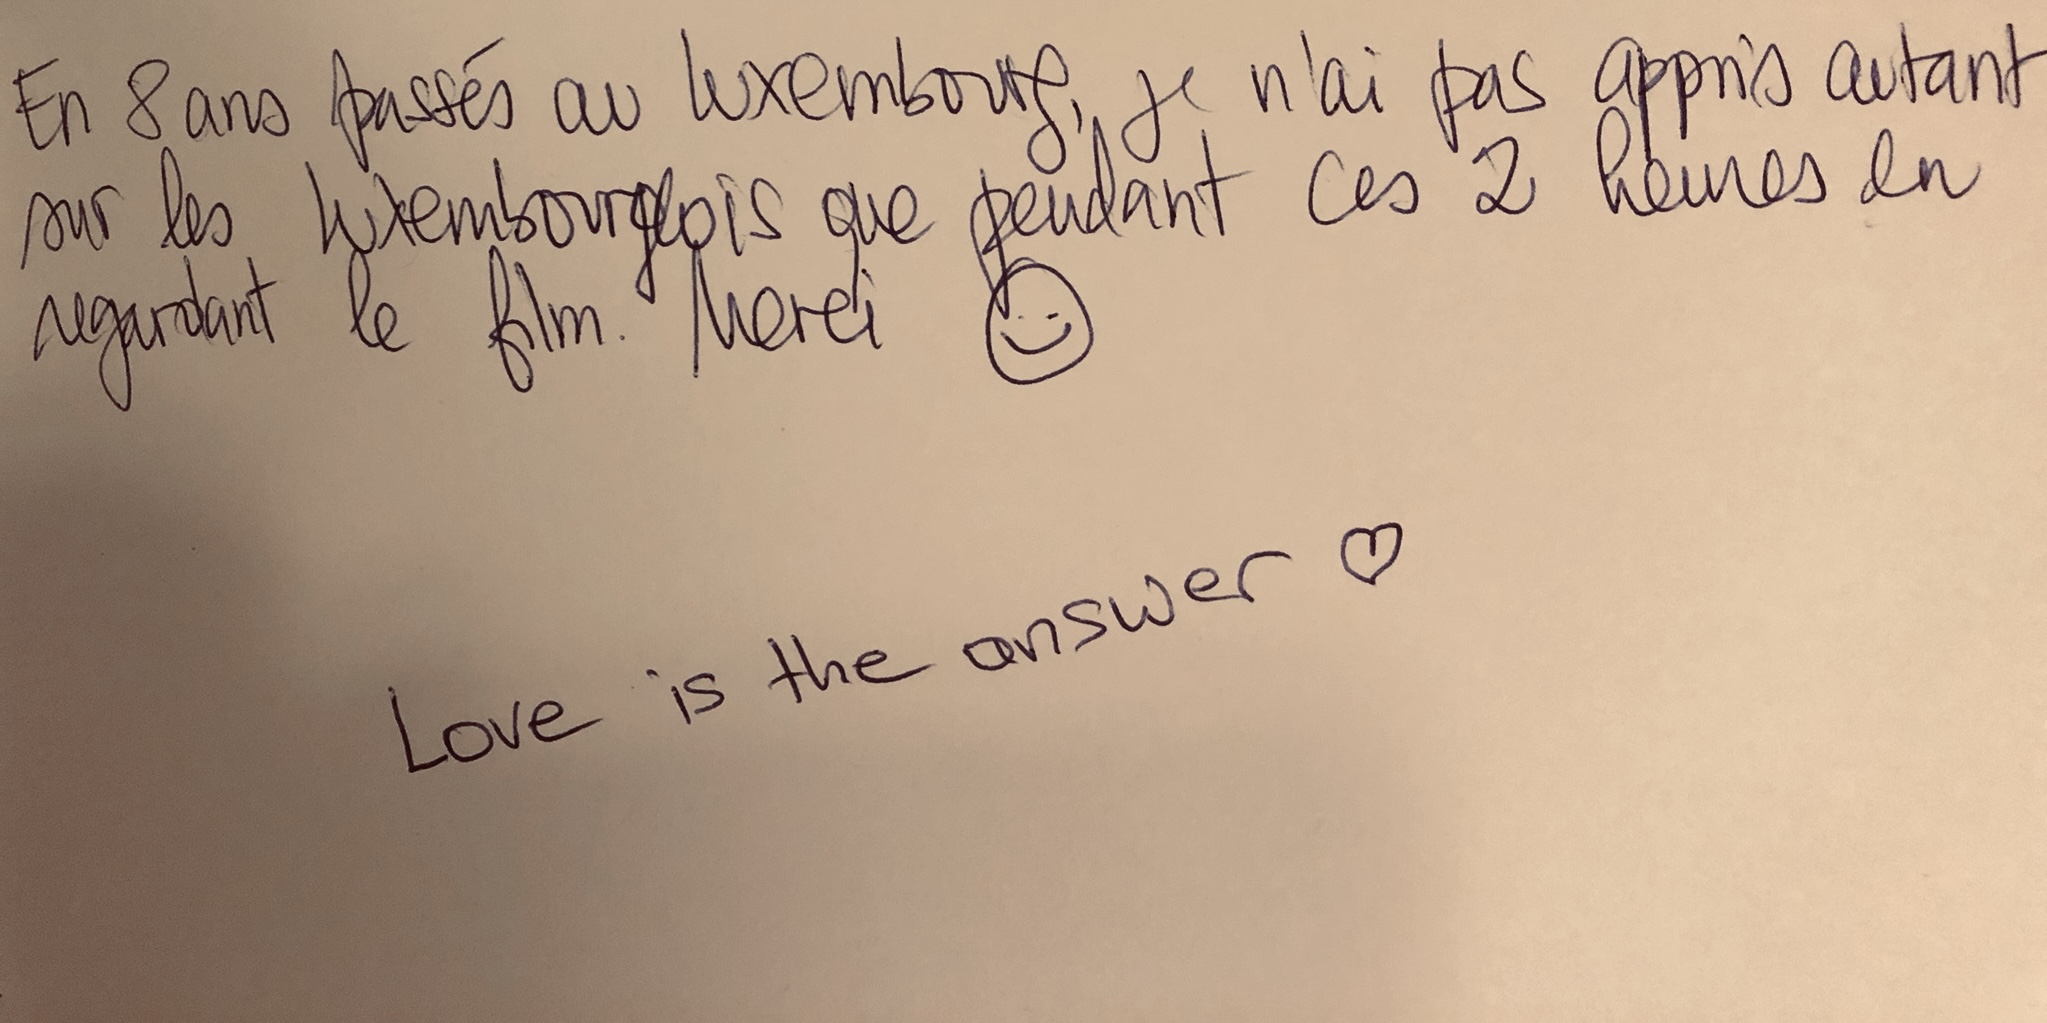 En 8 ans passés au Luxembourg, je n'ai pas appris autant
sur les luxembourgeois que pendant ces 2 heures en
regardant le film. Merci ☺
Love is the answer ♡